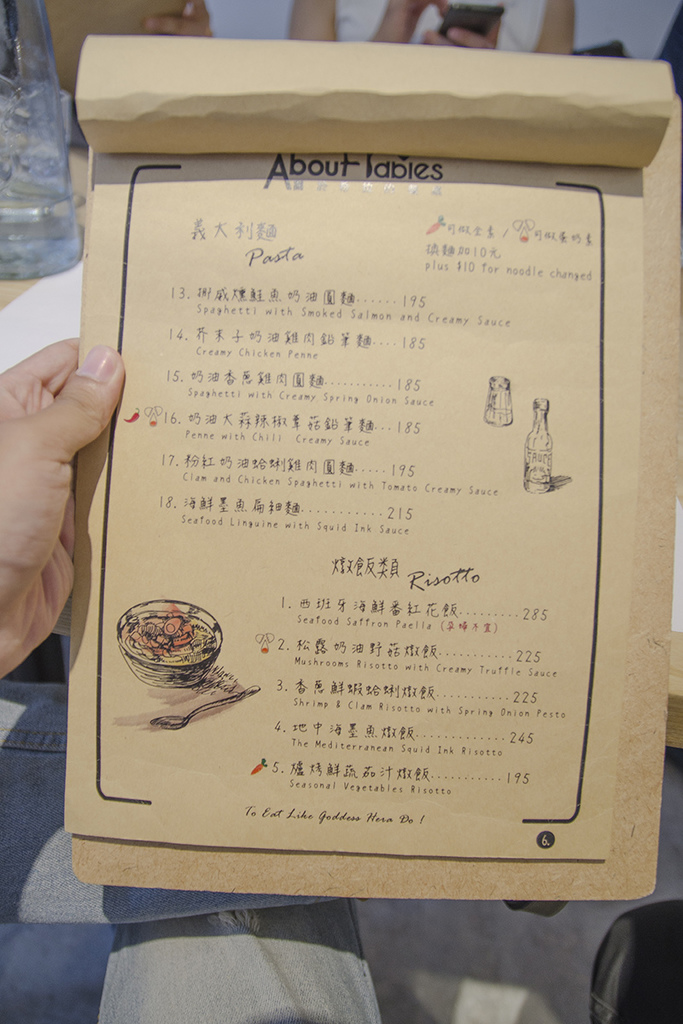 About Tables
義大利麵
Pasta
可做全素 / 可做蛋奶素
換麵加10元
plus $10 for noodle changed
13. 挪威燻鮭魚奶油圓麵......195
Spaghetti with Smoked Salmon and Creamy Sauce
14. 芥末子奶油雞肉鉛筆麵....185
Creamy Chicken Penne
15. 奶油香蔥雞肉圓麵.......185
Spaghetti with Creamy Spring Onion Sauce
16. 奶油大蒜辣椒蕈菇鉛筆麵...185
Penne with Chili Creamy Sauce
17. 粉紅奶油蛤蜊雞肉圓麵.....195
Clam and Chicken Spaghetti with Tomato Creamy Sauce
18. 海鮮墨魚扁細麵...........215
Seafood Linguine with Squid Ink Sauce
燉飯類 Risotto
1. 西班牙海鮮番紅花飯.........285
Seafood Saffron Paella
2. 松露奶油野菇燉飯.........225
Mushrooms Risotto with Creamy Truffle Sauce
3. 香蔥鮮蝦蛤蜊燉飯.........225
Shrimp & Clam Risotto with Spring Onion Pesto
4. 地中海墨魚燉飯............245
The Mediterranean Squid Ink Risotto
5. 爐烤鮮蔬茄汁燉飯...........195
Seasonal Vegetables Risotto
To Eat Like Goddess Hera Do !
6.